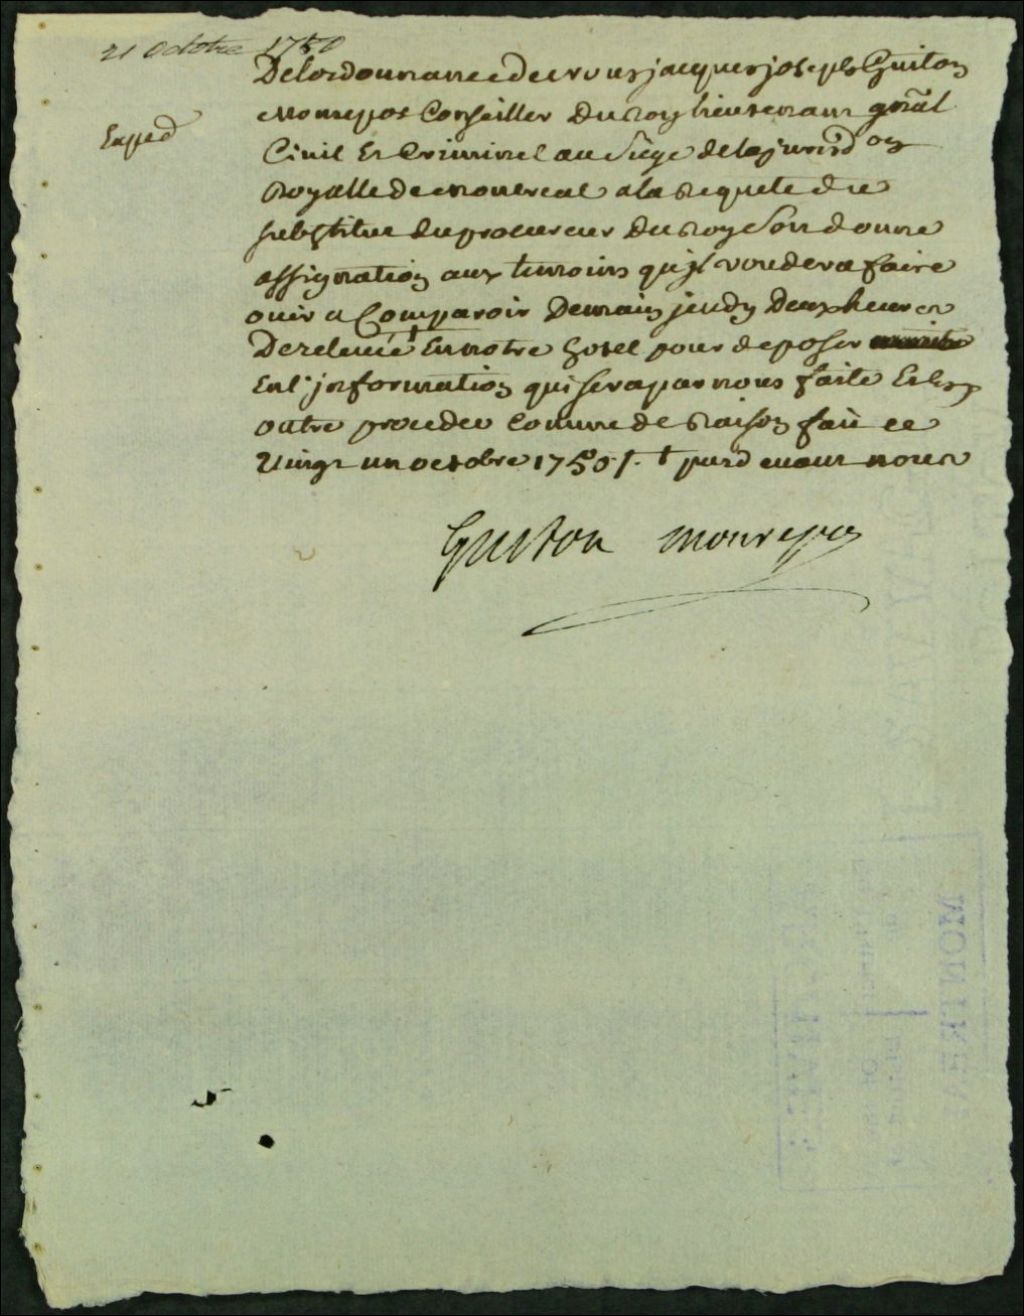 21 octobre 1750
De lordonnance de nous jacques joseph Guiton
Exped
Monrepos Conseiller Du Roy lieutenant gnãl
Civil Et Criminel au siege de la jurisdon
Royalle de Montreal a la Requete du
substitue du procureur du Roy soit donné
assignation aux temoins qu'jl voudera faire
ouir a Comparoir Demain jeudy Deux heures
De relevée † En notre hotel pour deposer
En l'jnformation qui sera par nous faite Et En
outre proceder comme de Raison fait ce
Vingt un octobre 1750 /. † pard euant nous
Guiton monrepos
MONTREAL